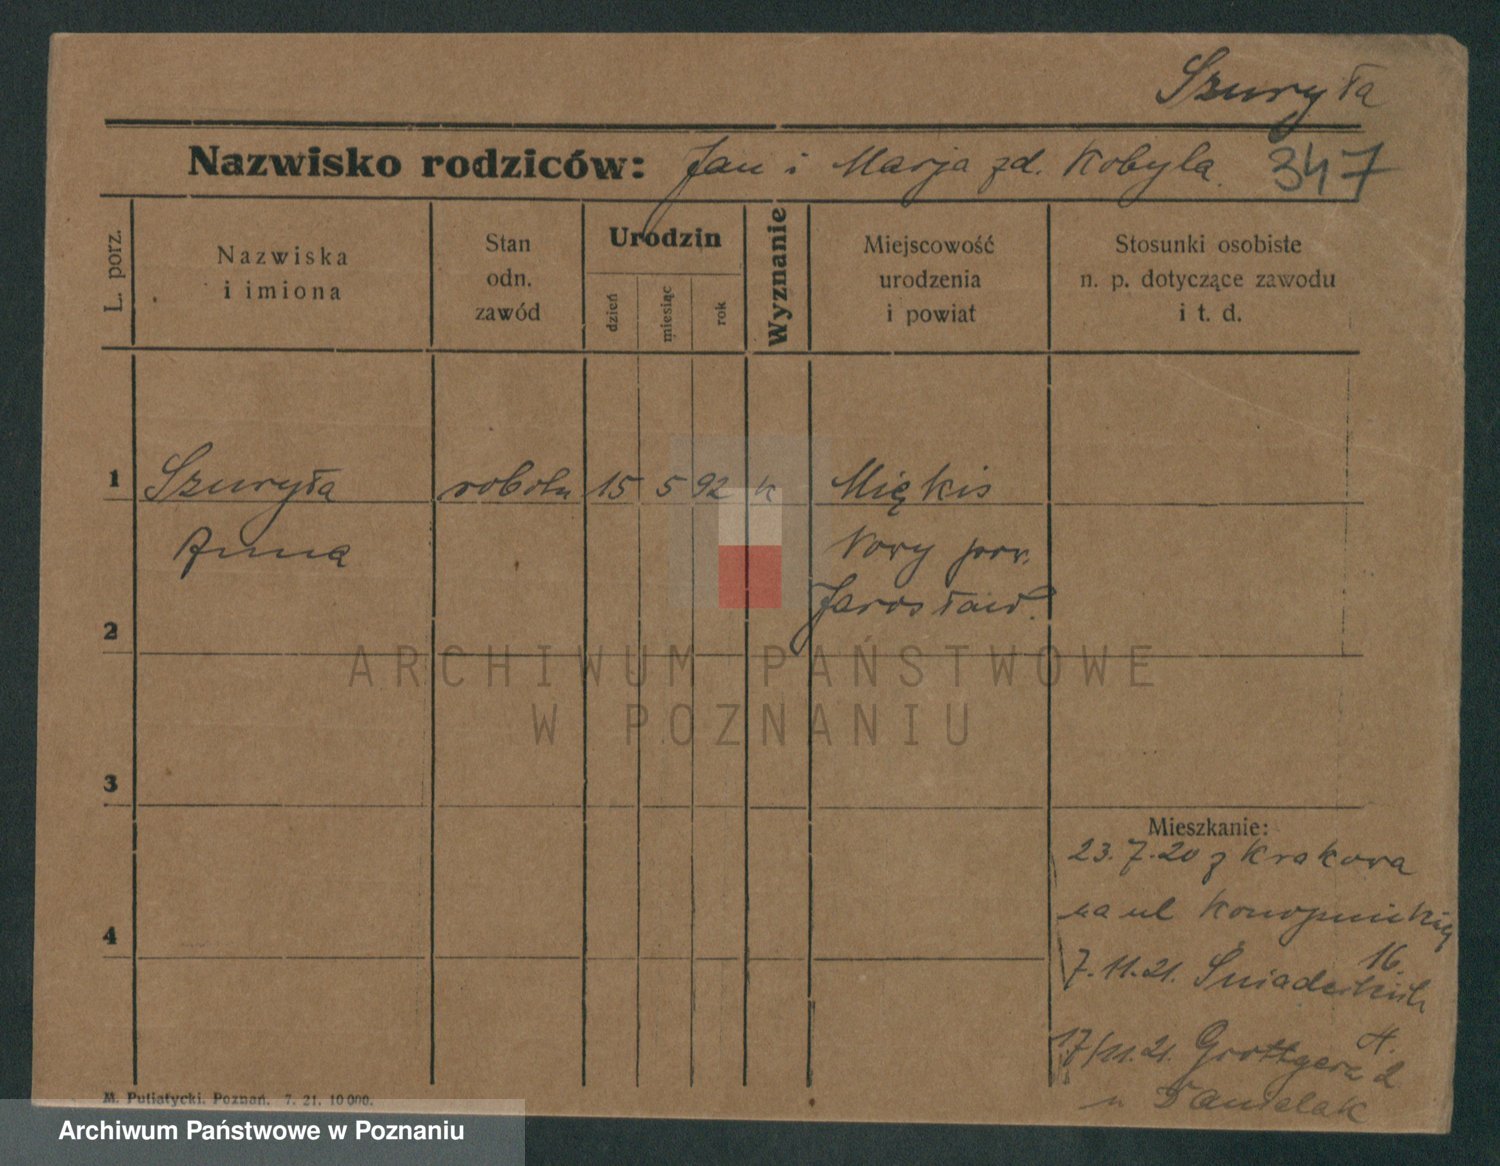 Szuryła
Nazwisko rodziców: Jan i Marja zd. Kobyla.
347
L. porz.
Nazwiska
i imiona
Stan
odn.
zawód
Urodzin
dzień
miesiąc
rok
Wyznanie
Miejscowość
urodzenia
i powiat
Stosunki osobiste
n. p. dotyczące zawodu
i t. d.
1 Szuryła robotn 15 5 92 k Miękis
Anna Nowy pow.
Jarosław.
2
ARCHIWUM PAŃSTWOWE
W POZNANIU
3
Mieszkanie:
23.7.20 z Krakowa
na ul Konopnickiej
4
16.
7.11.21. Śniadeckich
17/11.21. Grottgera 2
u Danielak
M. Putiatycki. Poznań. 7. 21. 10 000.
Archiwum Państwowe w Poznaniu